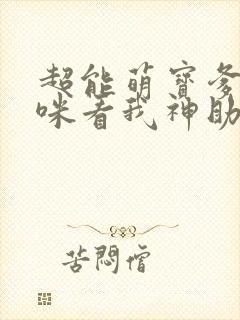 超能萌寶爹
咪看我神助
苦悶僧